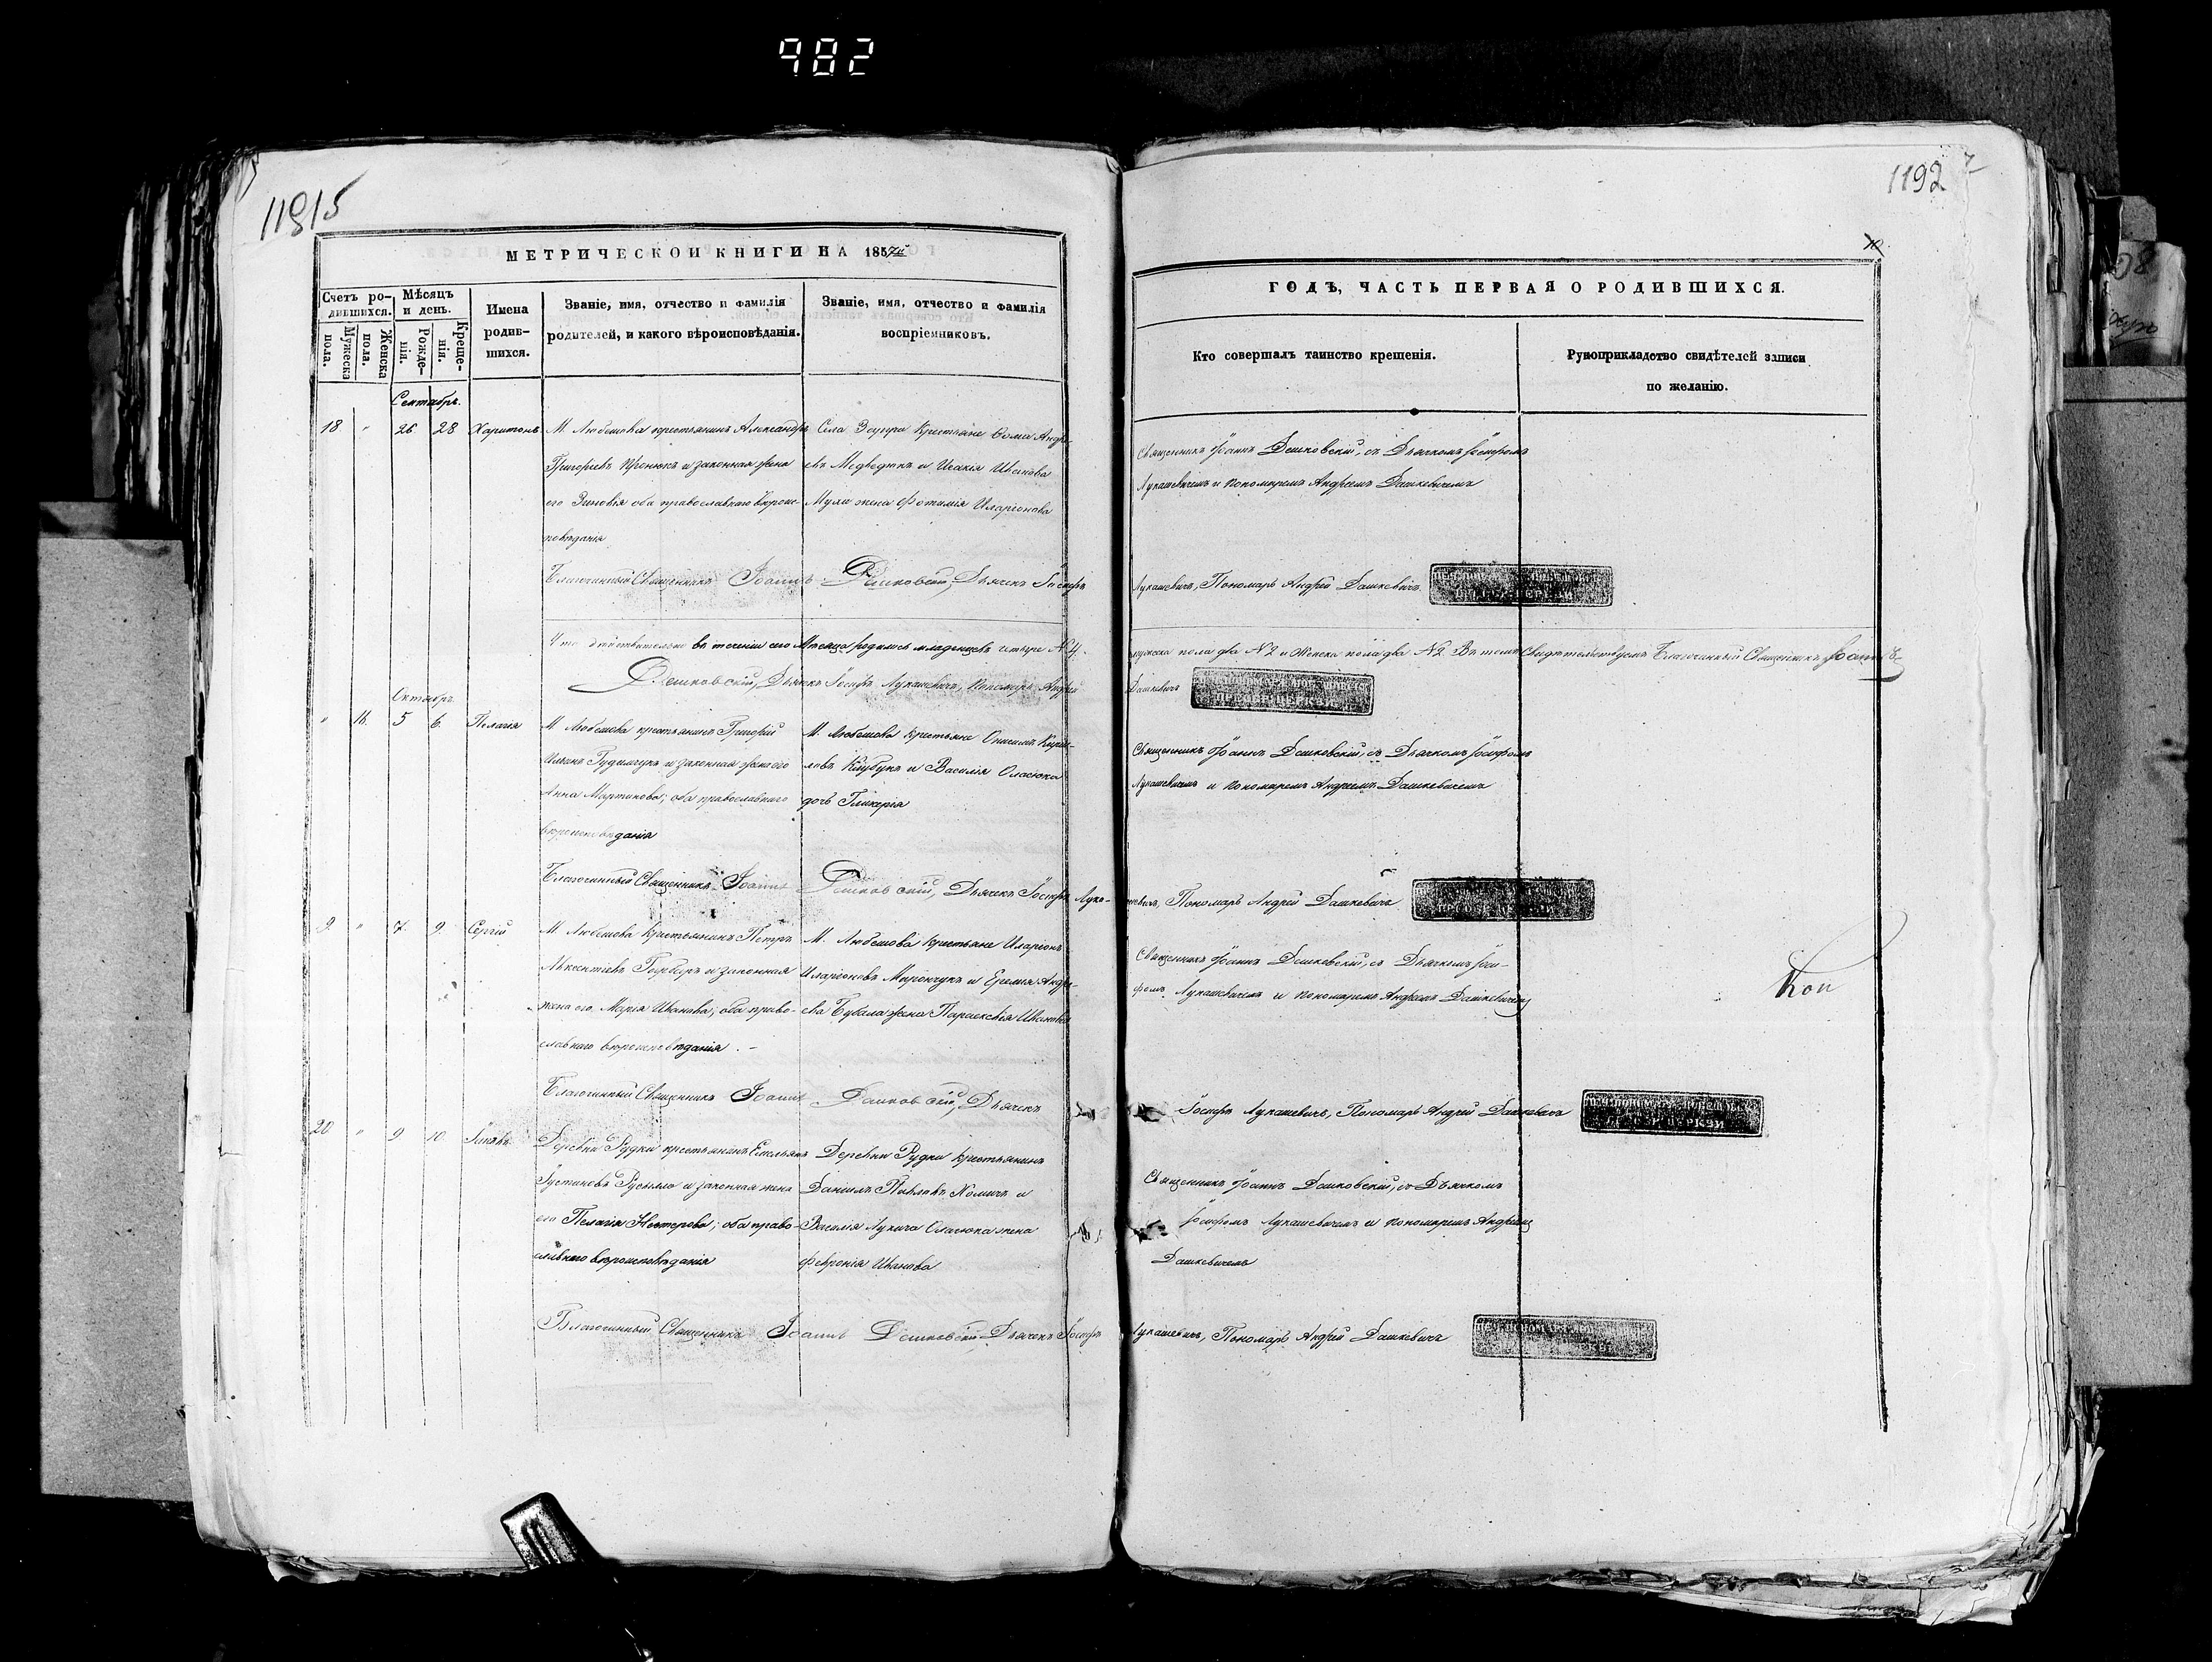 982
11815
МЕТРИЧЕСКОЙ КНИГИ НА 1857й
Счетъ родившихся.
Мужеска пола.
Женска пола.
Мѣсяцъ и день.
Рожденія.
Крещенія.
Имена родившихся.
Званіе, имя, отчество и фамилія
родителей, и какого вѣроисповѣданія.
Званіе, имя, отчество и фамилія
воспріемниковъ.
Сентябрь.
18 " 26 28 Харитонъ
М. Любешова крестьянинъ Александръ
Григорьевъ и законная жена
его Зиновія оба православнаго вѣроис-
повѣданія
Села Крестьяне Ѳома Андре-
евъ Медведюкъ и Исакія Иванова
Мула жена Фотинія Иларіонова
Благочинный Священникъ Іоаннъ Дашковскій, Дьячекъ Іосифъ
Что дѣйствительно въ теченіи сего Мѣсяца родилось младенцевъ четыре №4.
Дашковскій, Дьячекъ Іосифъ Лукашевичъ, Пономарь Андрей
Октябрь
" 16. 5 6. Пелагія
М. Любешова крестьянинъ Григорій
и законная жена его
Анна Мартинова; оба православнаго
вѣроисповѣданія
М. Любешова Крестьяне Кирил-
ловъ и Василія Оласюка
дочь Гликерія
Благочинный Священникъ Іоаннъ Дашковскій, Дьячекъ Іосифъ Лука-
9. " 7. 9. Сергій
М. Любешова Крестьянинъ Петръ
и законная
жена его Марія Иванова; оба право-
славнаго вѣроисповѣданія. -
М. Любешова крестьяне Иларіонъ
Иларіоновъ Мирончукъ и Еремія Андре-
ева жена Параскевія Иванова
Благочинный Священникъ Іоаннъ Дашковскій, Дьячекъ
20 " 9 10.
Деревни Рудки крестьянинъ Емельянъ
Іустиновъ и законная жена
его Пелагія Нестерова; оба право-
славнаго вѣроисповѣданія
Деревни Рудки Крестьянинъ
Даніилъ Павловъ Хомичъ и
Василія Лукича Оласюка жена
Февронія Иванова
Благочинный Священникъ Іоаннъ Дашковскій, Дьячекъ Іосифъ
1192
10
ГОДЪ, ЧАСТЬ ПЕРВАЯ О РОДИВШИХСЯ.
Кто совершалъ таинство крещенія.
Рукоприкладство свидѣтелей записи
по желанію.
Священникъ Іоаннъ Дашковскій, съ Дьячкомъ Іосифомъ
Лукашевичемъ и пономаремъ Андреемъ Дашкевичемъ
Лукашевичъ, Пономарь Андрей Дашкевичъ.
мужеска пола два №2 и Женска пола два №2. Въ томъ свидѣтельствуемъ Благочинный Священникъ Іоаннъ
Дашкевичъ
Священникъ Іоаннъ Дашковскій, съ Дьячкомъ Іосифомъ
Лукашевичемъ и пономаремъ Андреемъ Дашкевичемъ
шевичъ, Пономарь Андрей Дашкевичъ
Священникъ Іоаннъ Дашковскій, съ Дьячкомъ Іоси-
фомъ Лукашевичемъ и пономаремъ Андреемъ Дашкевичемъ
Коп
Іосифъ Лукашевичъ, Пономарь Андрей Дашкевичъ
Священникъ Іоаннъ Дашковскій, съ Дьячкомъ
Іосифомъ Лукашевичемъ и пономаремъ Андреемъ
Дашкевичемъ
Лукашевичъ, Пономарь Андрей Дашкевичъ